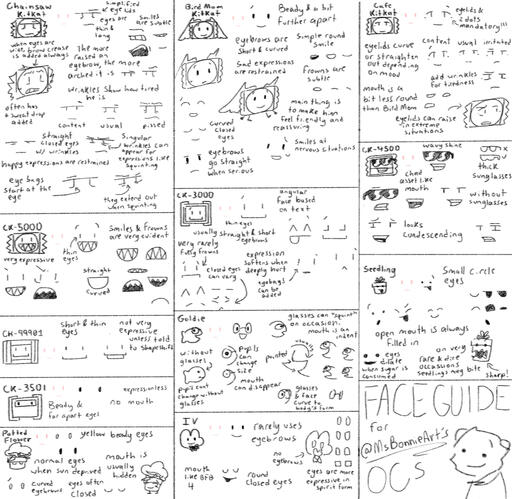 Chainsaw
Kitkat
simplified
eyelids
eyes are
thin &
long
smiles
are
subtle
when eyes are
wide, brow crease
is added always
The more
raised an
eyebrow, the more
arched it is
wrinkles show how tired
he is
often has
a sweat drop
added
content usual pissed
straight
closed eyes
w/ wrinkles
Singular
wrinkles can
appear for
expressions like
squinting
happy expressions are restrained
eye bags
start at the
eye
they extend out
when squinting
CK-5000
Smiles & frowns
are very evident
very expressive
thin
eyes
straight
curved
CK-99901
short & thin
eyes
not very
expressive
unless told
to shapeshift
CK-3501
expressionless
Beady &
far apart eyes
no mouth
Potted
Flower
yellow beady eyes
normal eyes
when sun deprived
mouth is
usually
hidden
curved
closed
eyes often
Bird Mom
Kitkat
Beady & a bit
further apart
eyebrows are
short & curved
Simple round
smile
Sad expressions
are restrained
Frowns are
subtle
main thing is
to make him
feel friendly and
reassuring
curved
closed
eyes
eyebrows
go straight
when serious
Smiles at
nervous situations
CK-3000
angular
face based
on text
thin eyes
usually straight & short
eyebrows
very rarely
fully frowns
closed eyes
can vary
expression
softens when
deeply hurt
eyebags
can be
added
Goldie
glasses can "squint"
on occasion,
mouth is an
indent
without
glasses
pupils
can
change
size
pointed
usually
mouth
can disappear
pupils can't
change without
glasses
glasses
& face
curve to
body's form
IV
rarely uses
eyebrows
no
eyebrows
mouth
like BFB
4
round
closed eyes
eyes are more
expressive in
spirit form
Cafe
Kitkat
eyelids &
2 dots
mandatory!!!
eyelids curve
or straighten
out depending
on mood
content usual irritated
mouth is a
bit less round
than Bird Mom
add wrinkles
for tiredness
eyelids can raise
in extreme
situations
CK-4500
wavy shine
chad
asset like
mouth
thick
sunglasses
without
sunglasses
looks
condescending
Seedling
Small circle
eyes
open mouth is always
filled in
eyes
dilate
when sugar is
consumed
on very
rare & dire
occasions
Seedlings may bite
sharp!
FACE GUIDE
for
@MsBonnieArt's
OCs